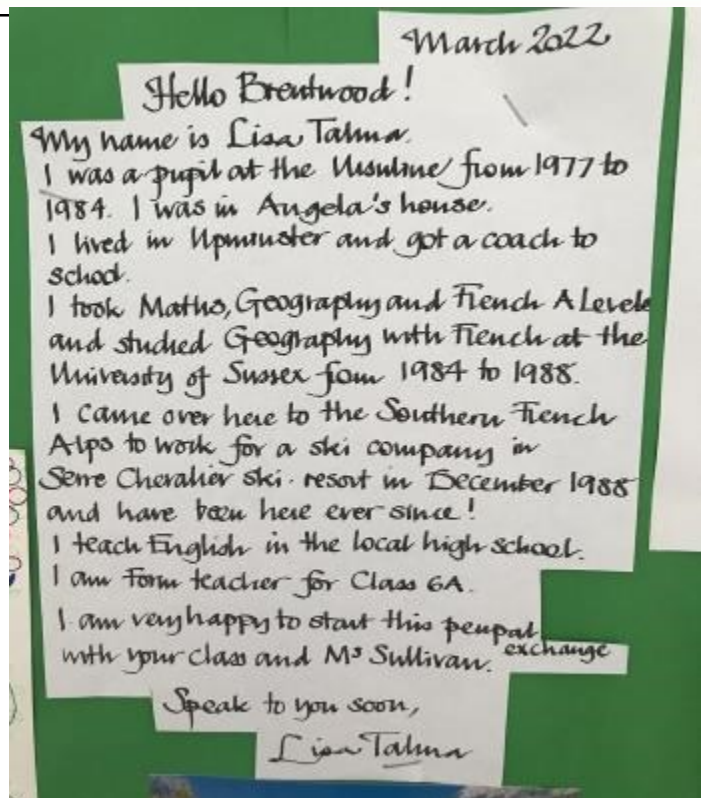 March 2022
Hello Brentwood!
My name is Lisa Talma.
I was a pupil at the Ursuline from 1977 to
1984. I was in Angela's house.
I lived in Upminster and got a coach to
school.
I took Maths, Geography and French A Levels
and studied Geography with French at the
University of Sussex from 1984 to 1988.
I came over here to the Southern French
Alps to work for a ski company in
Serre Chevalier ski resort in December 1988
and have been here ever since!
I teach English in the local high school.
I am Form teacher for Class 6A.
I am very happy to start this penpal
exchange
with your class and Ms Sullivan.
Speak to you soon,
Lisa Talma